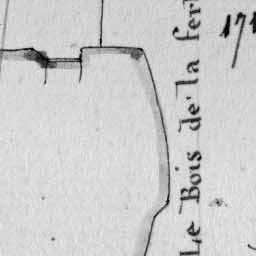 Le Bois de la fer